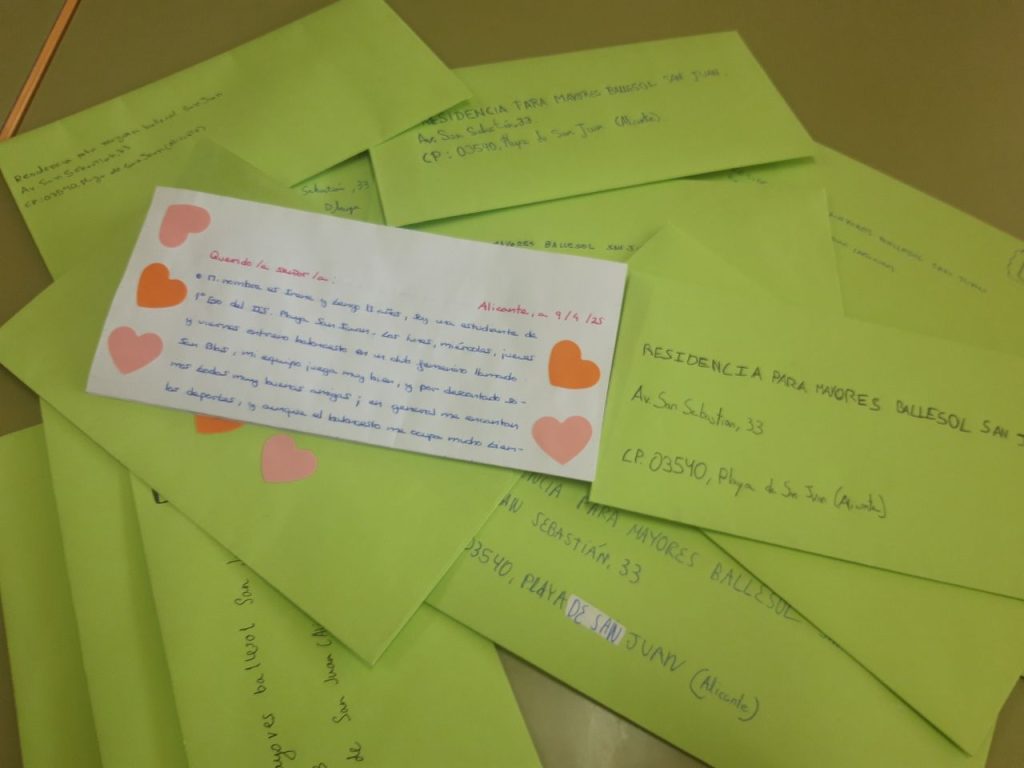 Residencia para mayores ballesol San Juan
Av San Sebastián, 33
CP: 03540, Playa de San Juan (Alicante)
RESIDENCIA PARA MAYORES BALLESOL SAN JUAN.
Av. San Sebastián, 33
CP: 03540, Playa de San Juan (Alicante).
Sebastián, 33
Playa
MAYORES BALLESOL SAN J
BALLESOL SAN JUAN
Querido/a señor/a:
Alicante, a 9/4/25
Mi nombre es Irene y tengo 13 años, soy una estudiante de
1º Eso del IES. Playa San Juan. Los lunes, miércoles, jueves
y viernes entreno baloncesto en un club femenino llamado
San Blas, mi equipo juega muy bien, y por descontado so-
mos todas muy buenas amigas; en general me encantan
los deportes, y aunque el baloncesto me ocupa mucho tiem-
RESIDENCIA PARA MAYORES BALLESOL SAN J
Av. San Sebastian, 33
CP. 03540, Playa de San Juan (Alicante)
ENCIA PARA MAYORES BALLESOL
AN SEBASTIÁN, 33
03540, PLAYA DE SAN JUAN (Alicante)
ayores ballesol San
de San Juan (Al